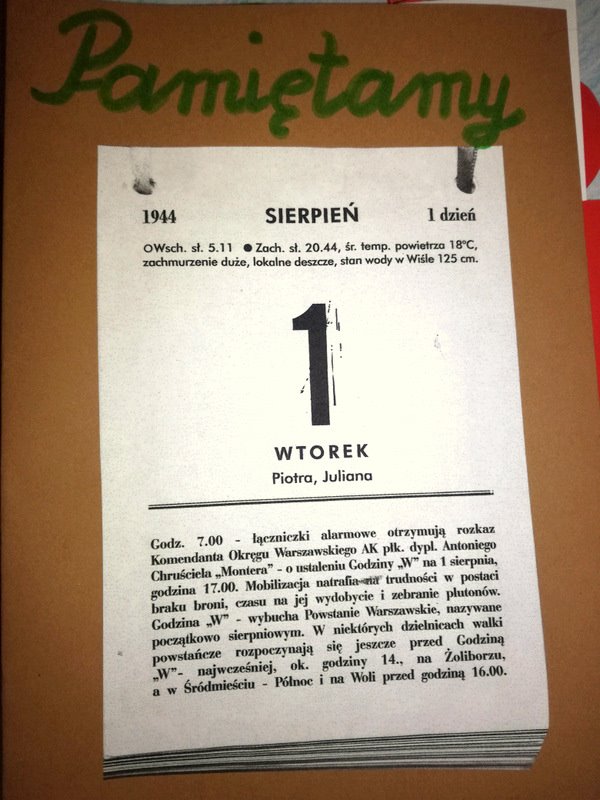 Pamiętamy
1944 SIERPIEŃ 1 dzień
Wsch. sł. 5.11 ● Zach. sł. 20.44, śr. temp. powietrza 18°C,
zachmurzenie duże, lokalne deszcze, stan wody w Wiśle 125 cm.
1
WTOREK
Piotra, Juliana
Godz. 7.00 - łączniczki alarmowe otrzymują rozkaz
Komendanta Okręgu Warszawskiego AK płk. dypl. Antoniego
Chruściela „Montera" - o ustaleniu Godziny „W" na 1 sierpnia,
godzina 17.00. Mobilizacja natrafia na trudności w postaci
braku broni, czasu na jej wydobycie i zebranie plutonów.
Godzina „W" - wybucha Powstanie Warszawskie, nazywane
początkowo sierpniowym. W niektórych dzielnicach walki
powstańcze rozpoczynają się jeszcze przed Godziną
„W"- najwcześniej, ok. godziny 14., na Żoliborzu,
a w Śródmieściu - Północ i na Woli przed godziną 16.00.